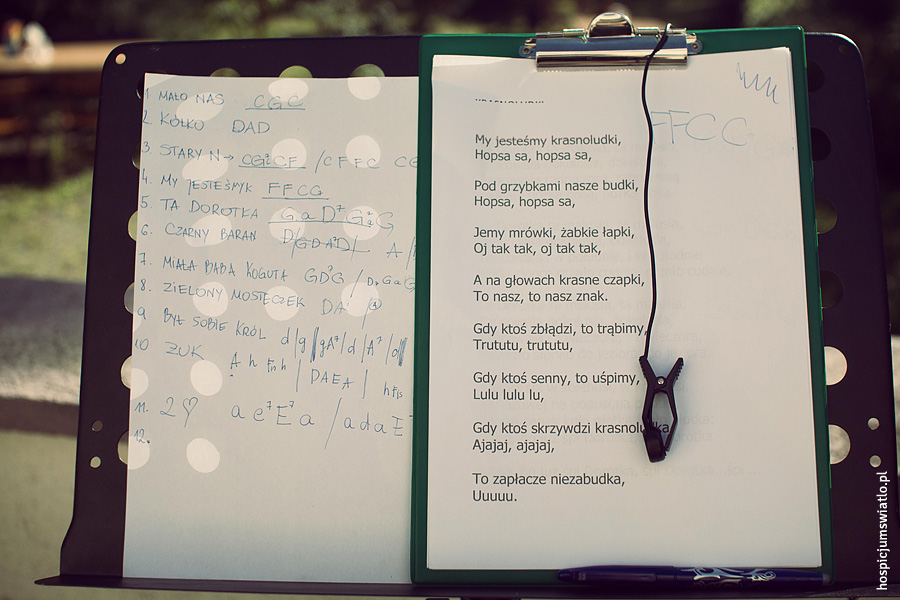 1. MAŁO NAS CGC
2. KÓŁKO DAD
3. STARY N → CG²CF / CFFC CG
4. MY JESTEŚMYK FFCG
5. TA DOROTKA GaD⁷G
6. CZARNY BARAN D/GDA²D/ A /
7. MIAŁA BABA KOGUTA GD²G /
8. ZIELONY MOSTECZEK DA
9 BYŁ SOBIE KRÓL d/g gA⁷/d/A⁷/d
10 ŻUK A h h
/ DAEA /
11. 2 ♡ a e⁷E⁷a / adaE
12.
KRASNOLUDKI
FFCG
My jesteśmy krasnoludki,
Hopsa sa, hopsa sa,
Pod grzybkami nasze budki,
Hopsa, hopsa sa,
Jemy mrówki, żabkie łapki,
Oj tak tak, oj tak tak,
A na głowach krasne czapki,
To nasz, to nasz znak.
Gdy ktoś zbłądzi, to trąbimy,
Trututu, trututu,
Gdy ktoś senny, to uśpimy,
Lulu lulu lu,
Gdy ktoś skrzywdzi krasnoludka
Ajajaj, ajajaj,
To zapłacze niezabudka,
Uuuuu.
hospicjumswiatlo.pl